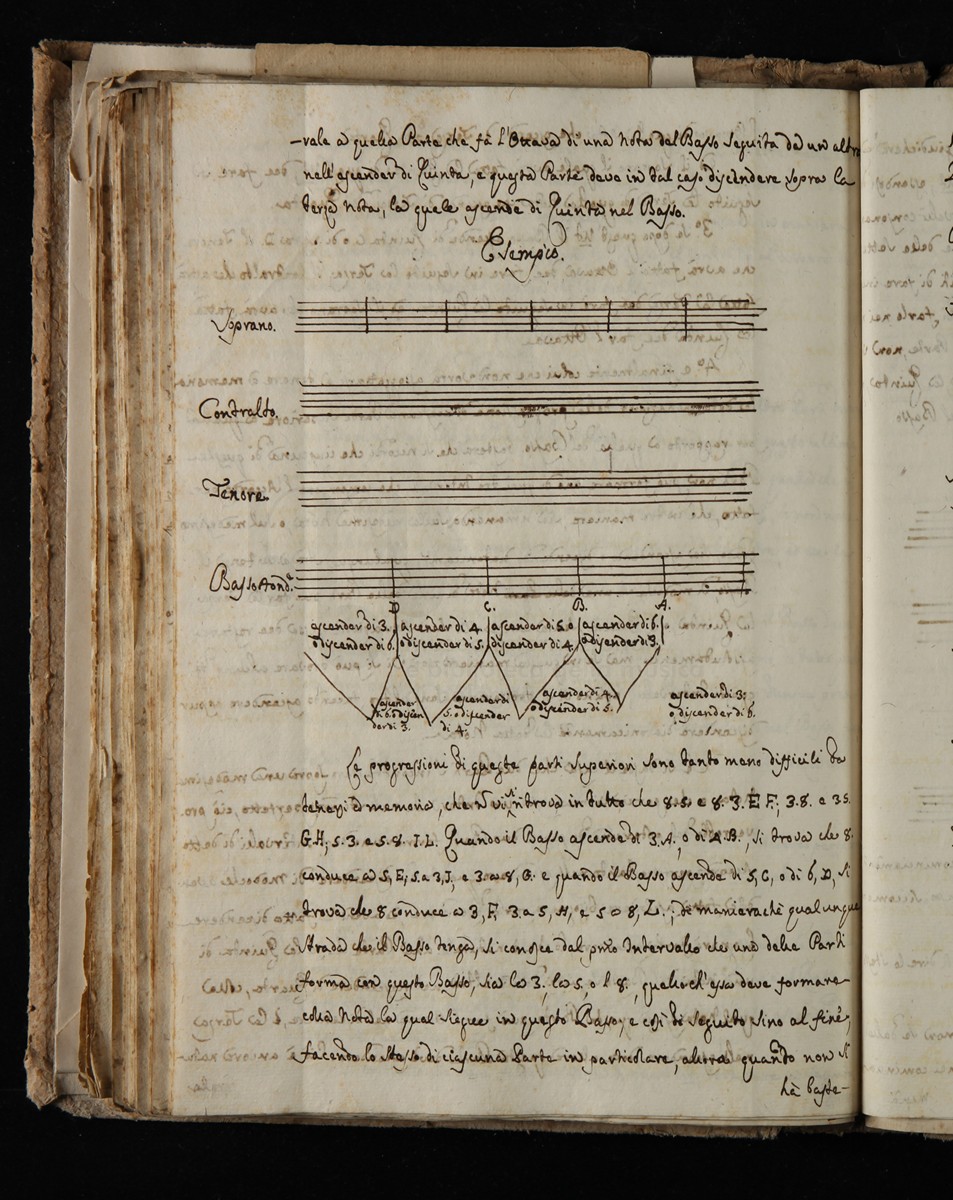 -vale a quella Parte che fà l'Ottava di una nota del Basso seguita da un altra
nell'ascender di Quinta, e questa Parte deve in tal caso discendere sopra la
terza nota, la quale ascende di Quinta nel Basso.
Esempio.
Soprano.
Contralto.
Tenore.
Basso fond.e
D C. B. A.
ascender di 3. ascender di 4. ascender di 5. o ascender di 6.
o discender di 6. o discender di 5. discender di 4. o discender di 3.
ascender di 6. o discender di 3.
ascender di 5. o discender di 4.
ascender di 4. o discender di 5.
ascender di 3; o discender di 6.
Le progressioni di queste parti Superiori sono tanto meno difficili da
tenersi a memoria, che vi si ritrova in tutto che 8. 5. e 8. 3. E F; 3. 8. e 3 5.
G. H; 5. 3. e 5. 8. I. L. Quando il Basso ascende di 3. A, o di 4. B., si trova che 8.
conduce a 5, E; 5. a 3, I, e 3. a 8, G. e quando il Basso ascende di 5, C, o di 6, D, si
trova che 8 conduce a 3, F, 3. a 5, H, e 5 a 8, L.; di maniera chè qualunque
strada che il Basso tenga, si conosce dal primo Intervallo che una delle Parti
forma con questo Basso, sia la 3, la 5, o l'8, quello ch'essa deve formare
colla Nota la qual siegue in questo Basso; e così di seguito sino al fine;
facendo lo stesso di ciascuna Parte in particolare, allora quando non si
hà basse-